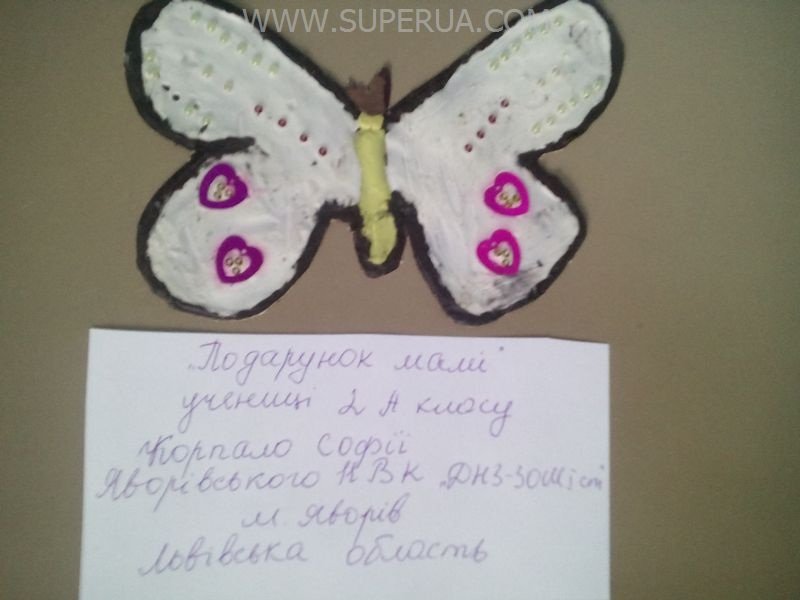 WWW.SUPERUA.COM
"Подарунок мамі"
учениці 2 А класу
Корпало Софії
Яворівського НВК „ДНЗ-ЗОШ І ст"
м. Яворів
Львівська область